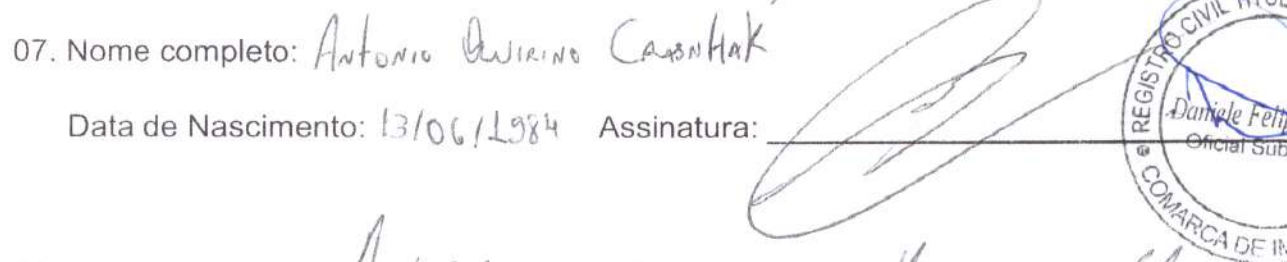 07. Nome completo: Antonio Quirino
Data de Nascimento: 13/06/1984 Assinatura:
REGISTRO CIVIL
Daniele
Oficial Sub
COMARCA DE